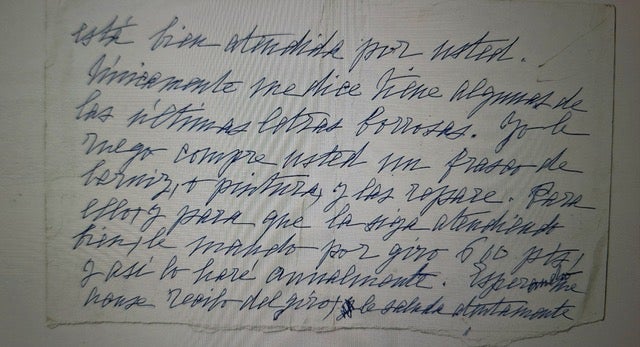 está bien atendida por usted.
Únicamente me dice tiene algunas de
las últimas letras borrosas. Yo le
ruego compre usted un frasco de
barniz, o pintura, y las repare. Para
ello, y para que la siga atendiendo
bien, le mando por giro 600 pts,
y así lo haré anualmente. Esperando me
recibo del giro, le saluda atentamente